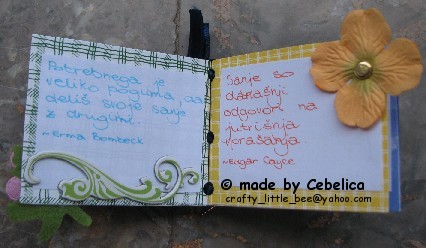 Potrebnega je
veliko poguma, da
deliš svoje sanje
z drugimi.
~Erma Bombeck
Sanje so
današnji
odgovori na
jutrišnja
vprašanja.
~Edgar Cayce
© made by Cebelica
crafty_little_bee@yahoo.com